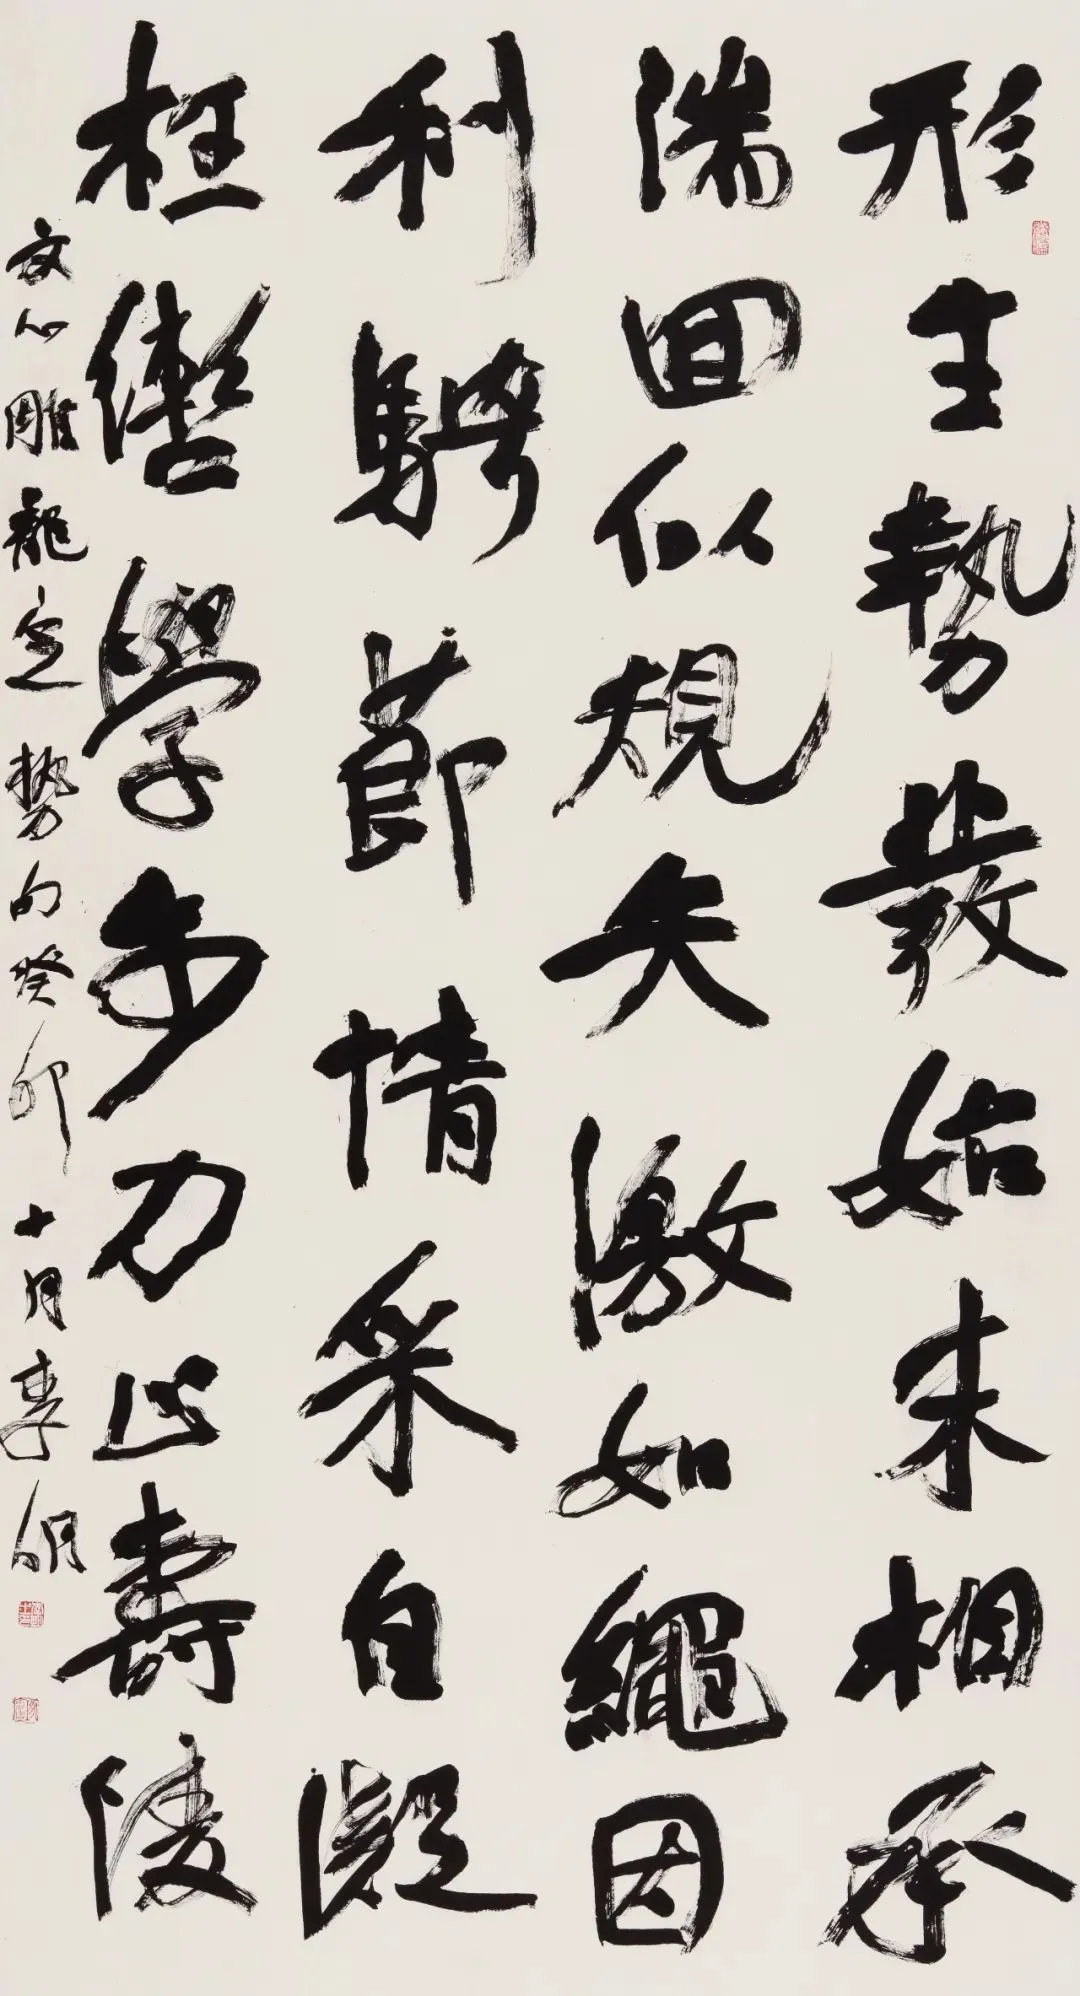 形生勢發始末相承
湍回似規矢激如繩因
利騁節情采自凝
枉轡學步力止壽陵
文心雕龍定勢句癸卯十月李明